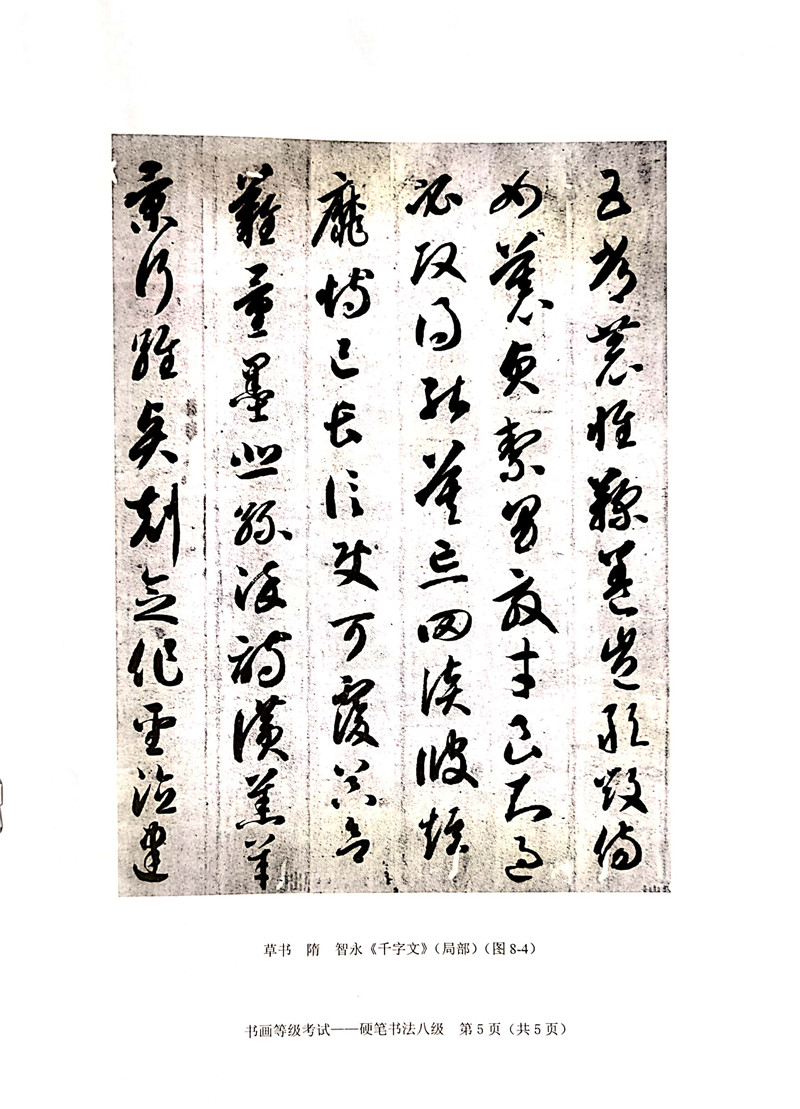 五常恭惟鞠養豈敢毀傷
女慕貞絜男效才良知過
必改得能莫忘罔談彼短
靡恃己長信使可覆器欲
難量墨悲絲染詩讚羔羊
景行維賢剋念作聖德建
草书 隋 智永《千字文》（局部）（图8-4）
书画等级考试——硬笔书法八级 第5页（共5页）